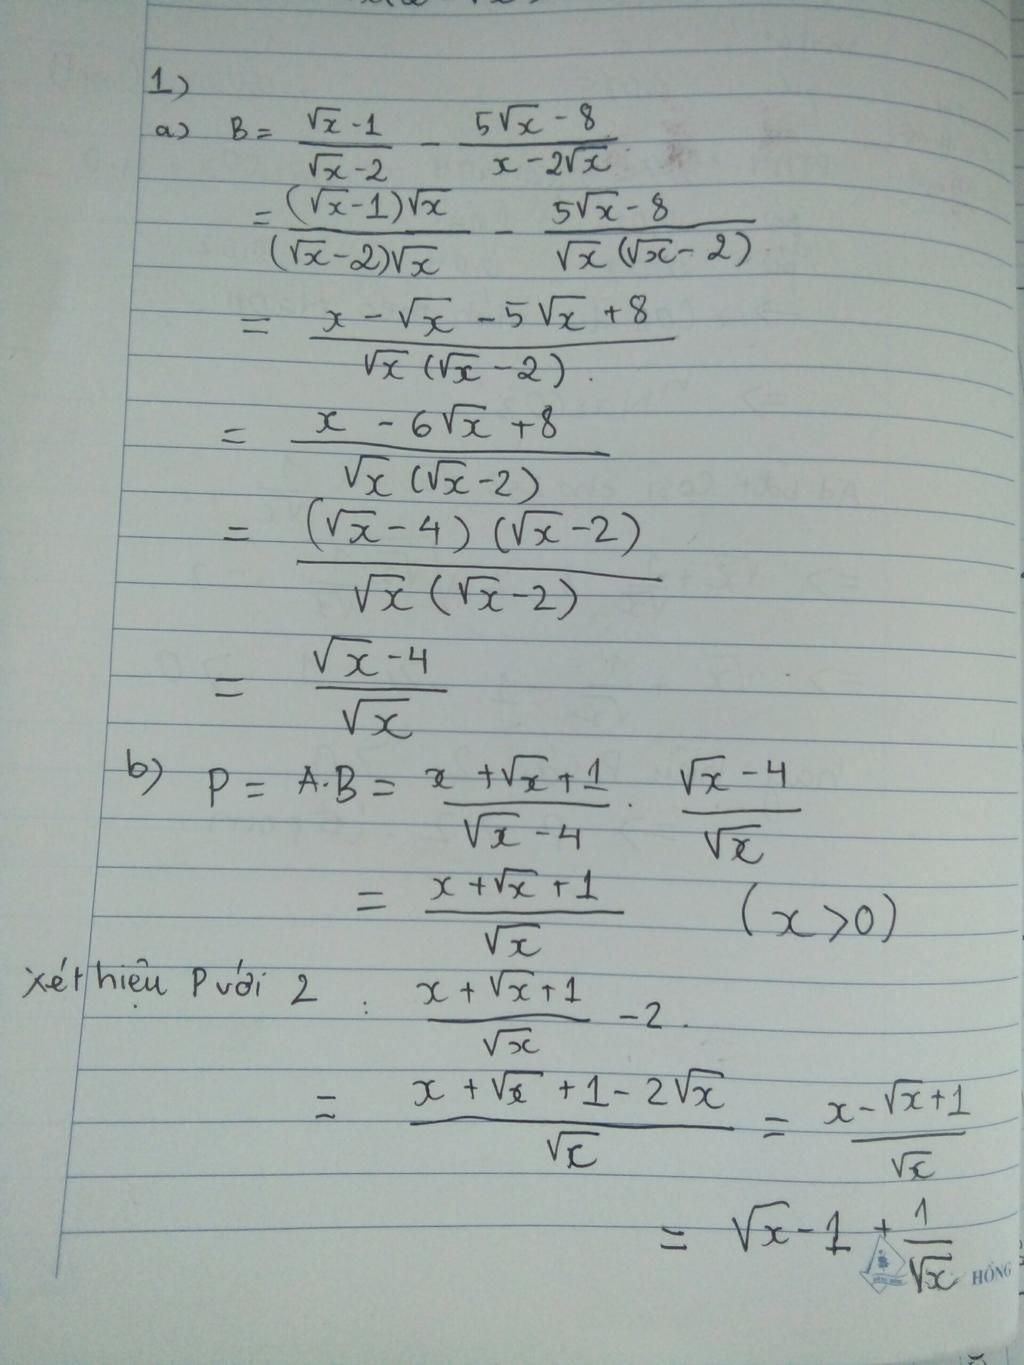 1)
a) B = (√x - 1)/(√x - 2) - (5√x - 8)/(x - 2√x).
= ((√x - 1)√x)/((√x - 2)√x) - (5√x - 8)/(√x (√x - 2))
= (x - √x - 5√x + 8)/(√x (√x - 2)).
= (x - 6√x + 8)/(√x (√x - 2))
= ((√x - 4) (√x - 2))/(√x (√x - 2))
= (√x - 4)/√x
b) P = A.B = (x + √x + 1)/(√x - 4) . (√x - 4)/√x
= (x + √x + 1)/√x (x > 0)
xét hiệu P với 2 : (x + √x + 1)/√x - 2.
= (x + √x + 1 - 2√x)/√x = (x - √x + 1)/√x
= √x - 1 + 1/√x
HỒNG